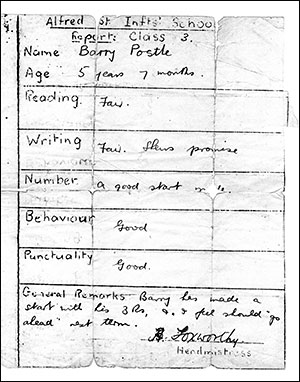 Alfred St Infts' School
Report: Class 3.
Name Barry Postle
Age 5 years 7 months.
Reading. Fair.
Writing Fair. Shews promise
Number a good start in
Behaviour Good
Punctuality Good.
General Remarks Barry has made a
start with his 3 Rs, & I feel should "go
ahead" next term.
B. Foxworthy
Headmistress